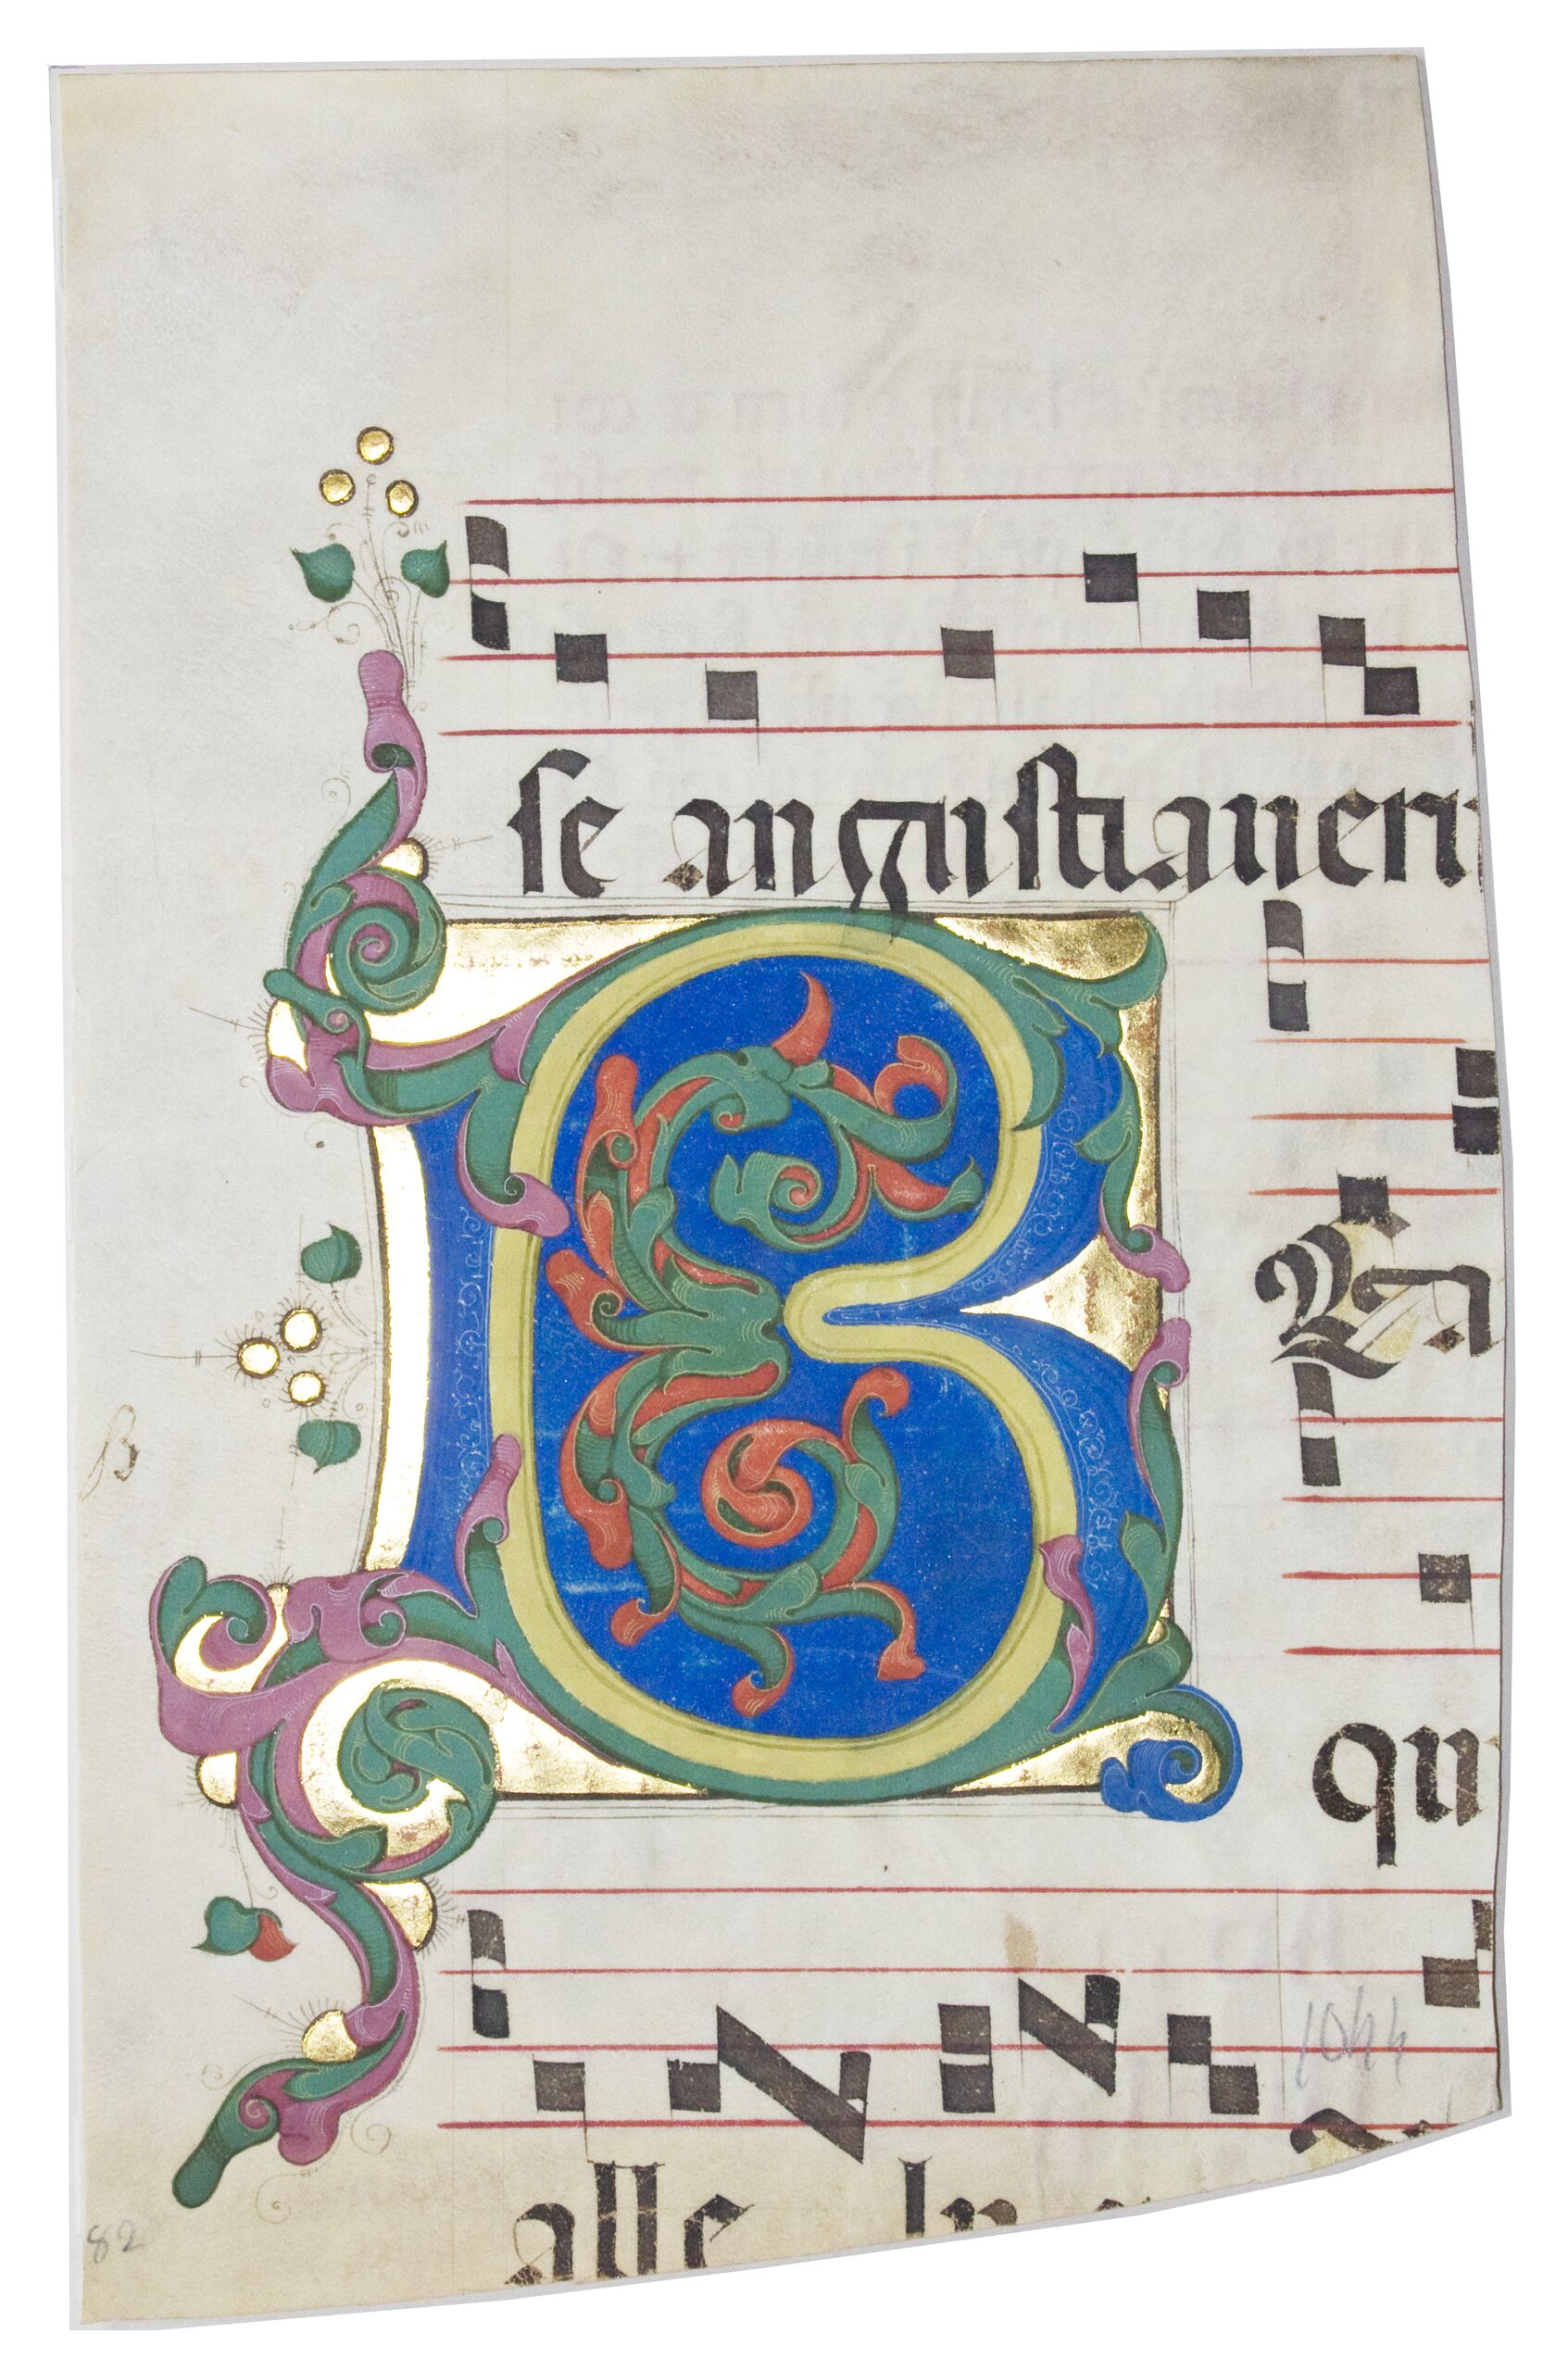 se angustiauerũ
B
Ea
β
qui
1044
alle lu
82